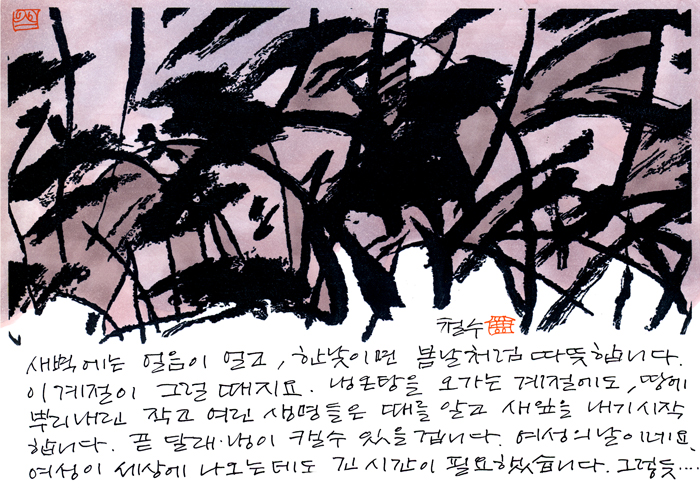 철수
새벽에는 얼음이 얼고, 한낮이면 봄날처럼 따뜻합니다.
이 계절이 그럴 때지요. 냉온탕을 오가는 계절에도, 땅에
뿌리내린 작고 여린 생명들은 때를 알고 새잎을 내기 시작
합니다. 곧 달래·냉이 캐실수 있을겁니다. 여성의 날이네요.
여성이 세상에 나오는데도 긴 시간이 필요했습니다. 그렇듯····